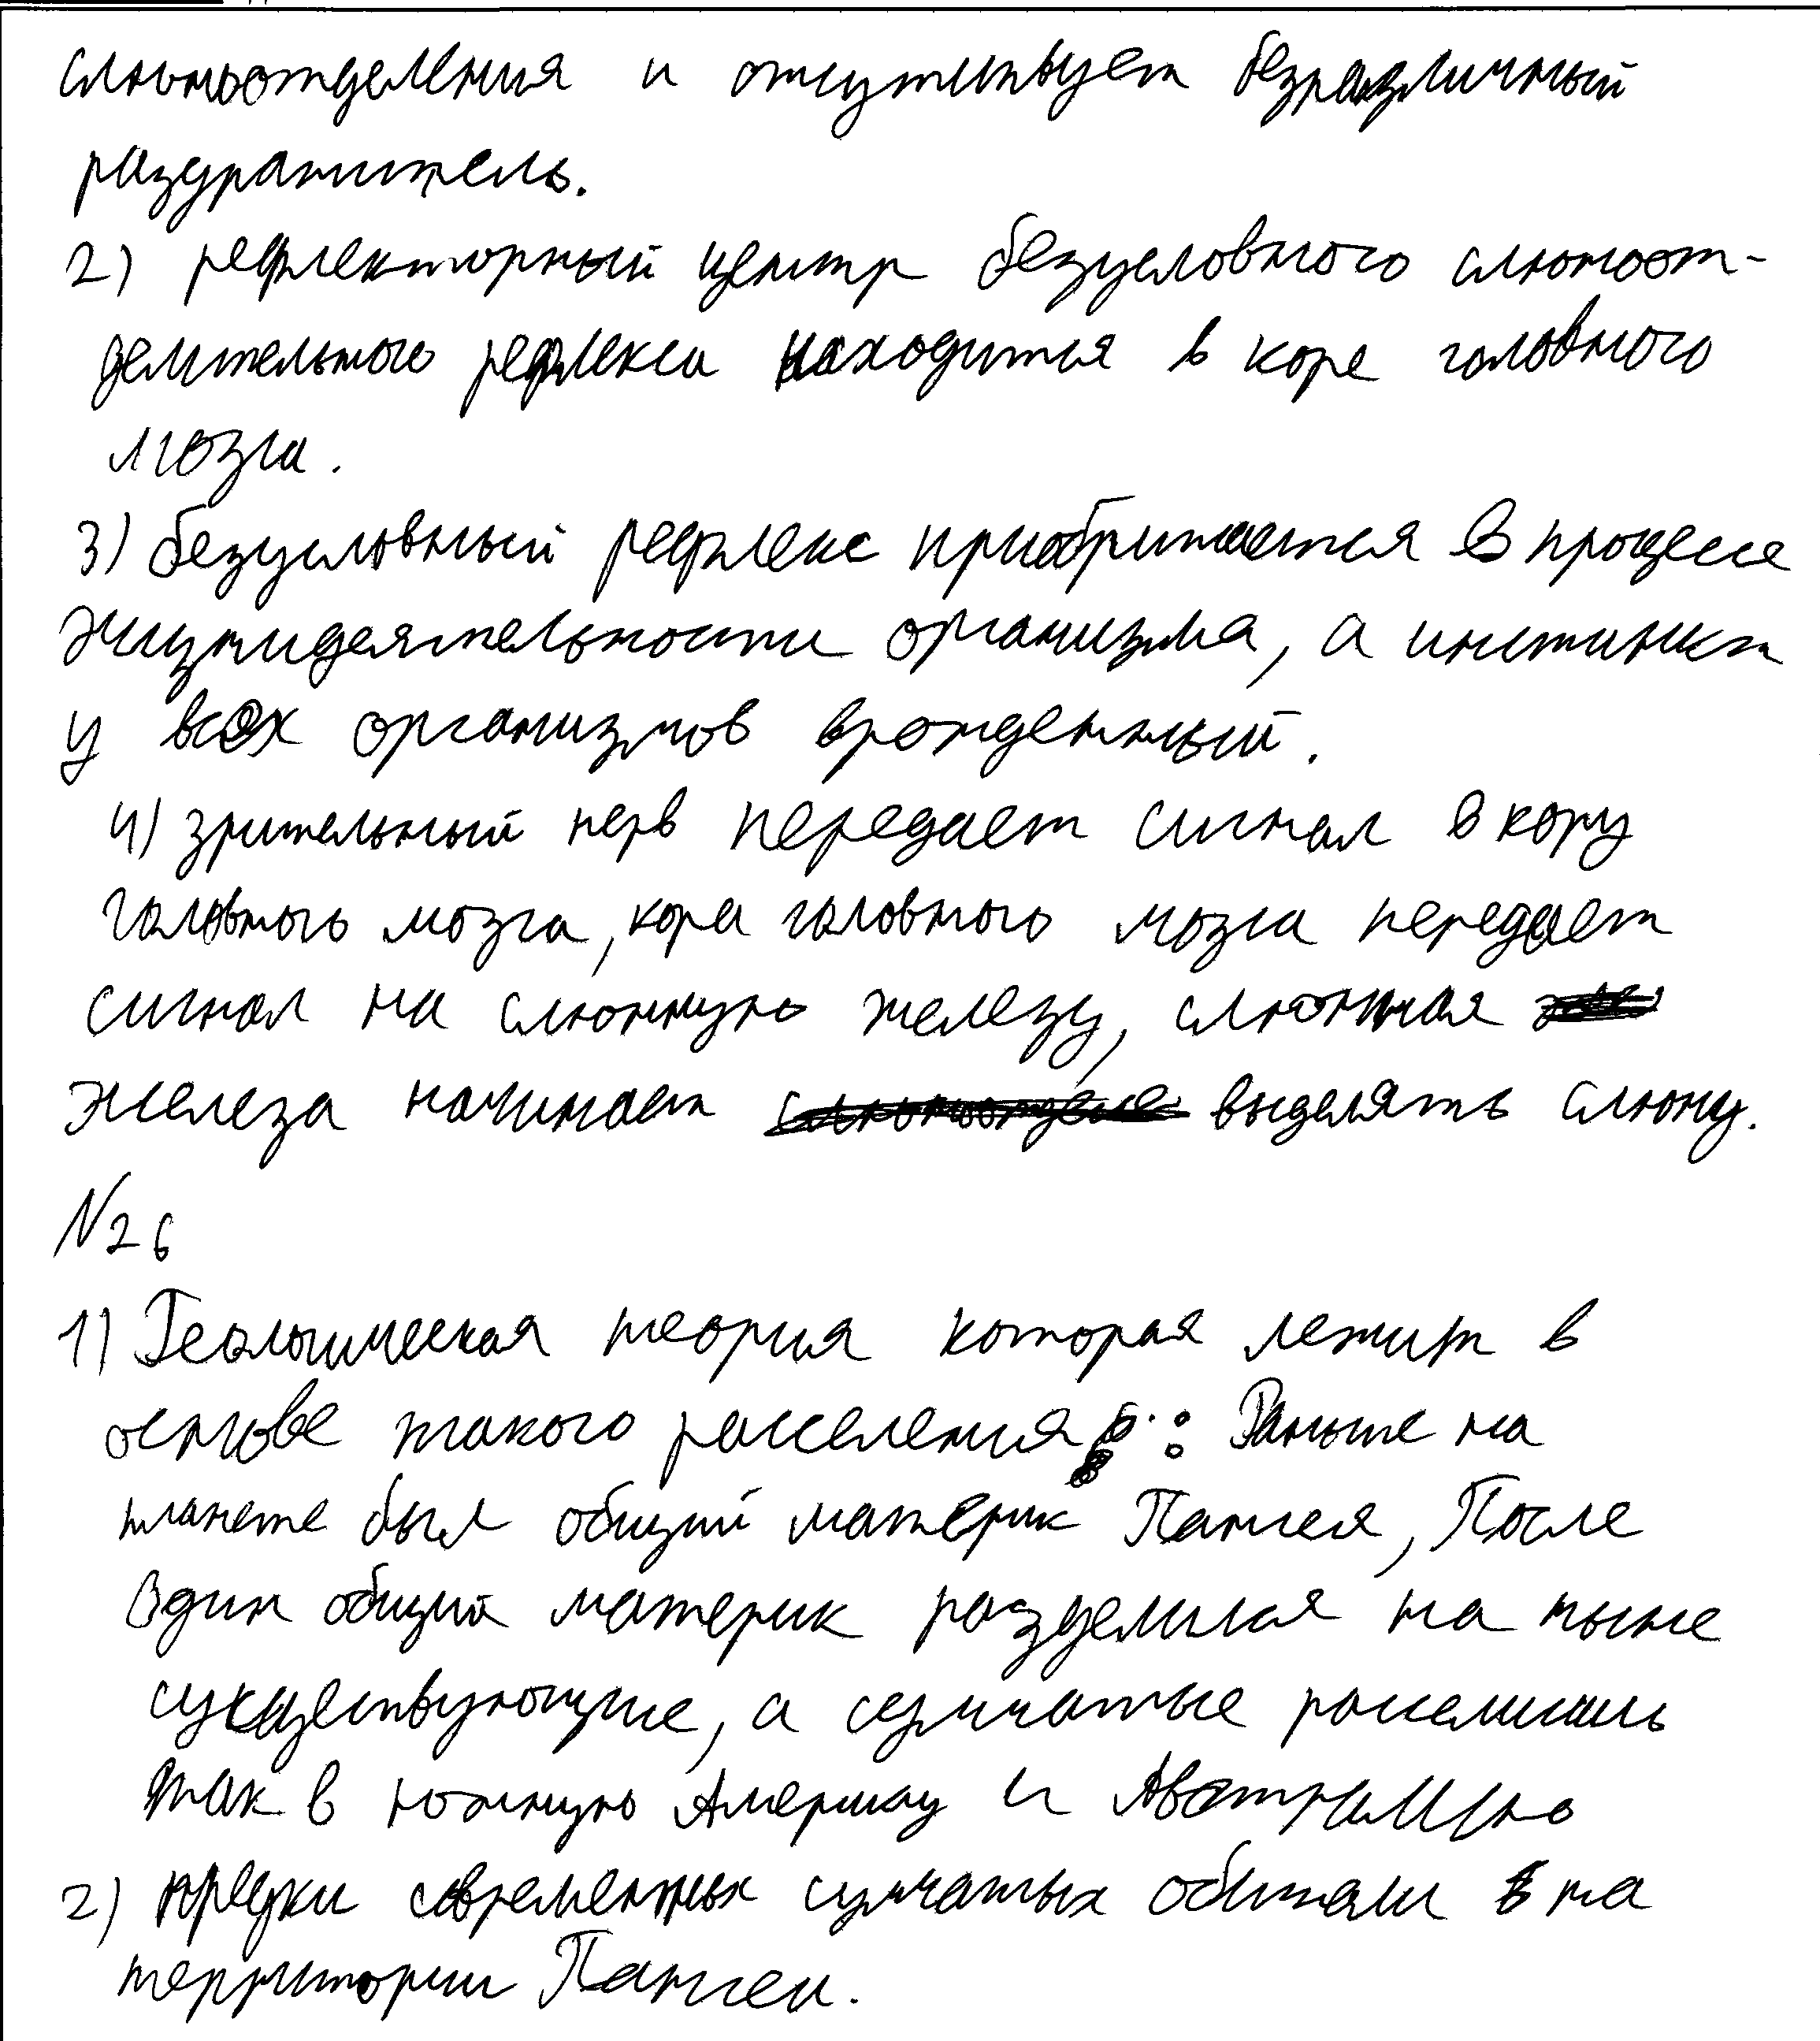 слюноотделения и отсутствует безразличный
раздражитель.
2) рефлекторный центр безусловного слюноот-
делительного рефлекса находится в коре головного
мозга.
3) безусловный рефлекс приобритается в процессе
жизнидеятельности организма, а инстинкт
у всех организмов врожденный.
4) зрительный нерв передает сигнал в кору
головного мозга, кора головного мозга передает
сигнал на слюнную железу, слюнная
железа начинает выделять слюну.
N26
1) Геологическая теория которая лежит в
основе такого расселения : Раньше на
планете был общий материк Пангея, После
один общий материк разделился на ныне
существующие, а сумчатые расселились
так в южную Америку и Австралию
2) предки современных сумчатых обитали на
территории Пангеи.